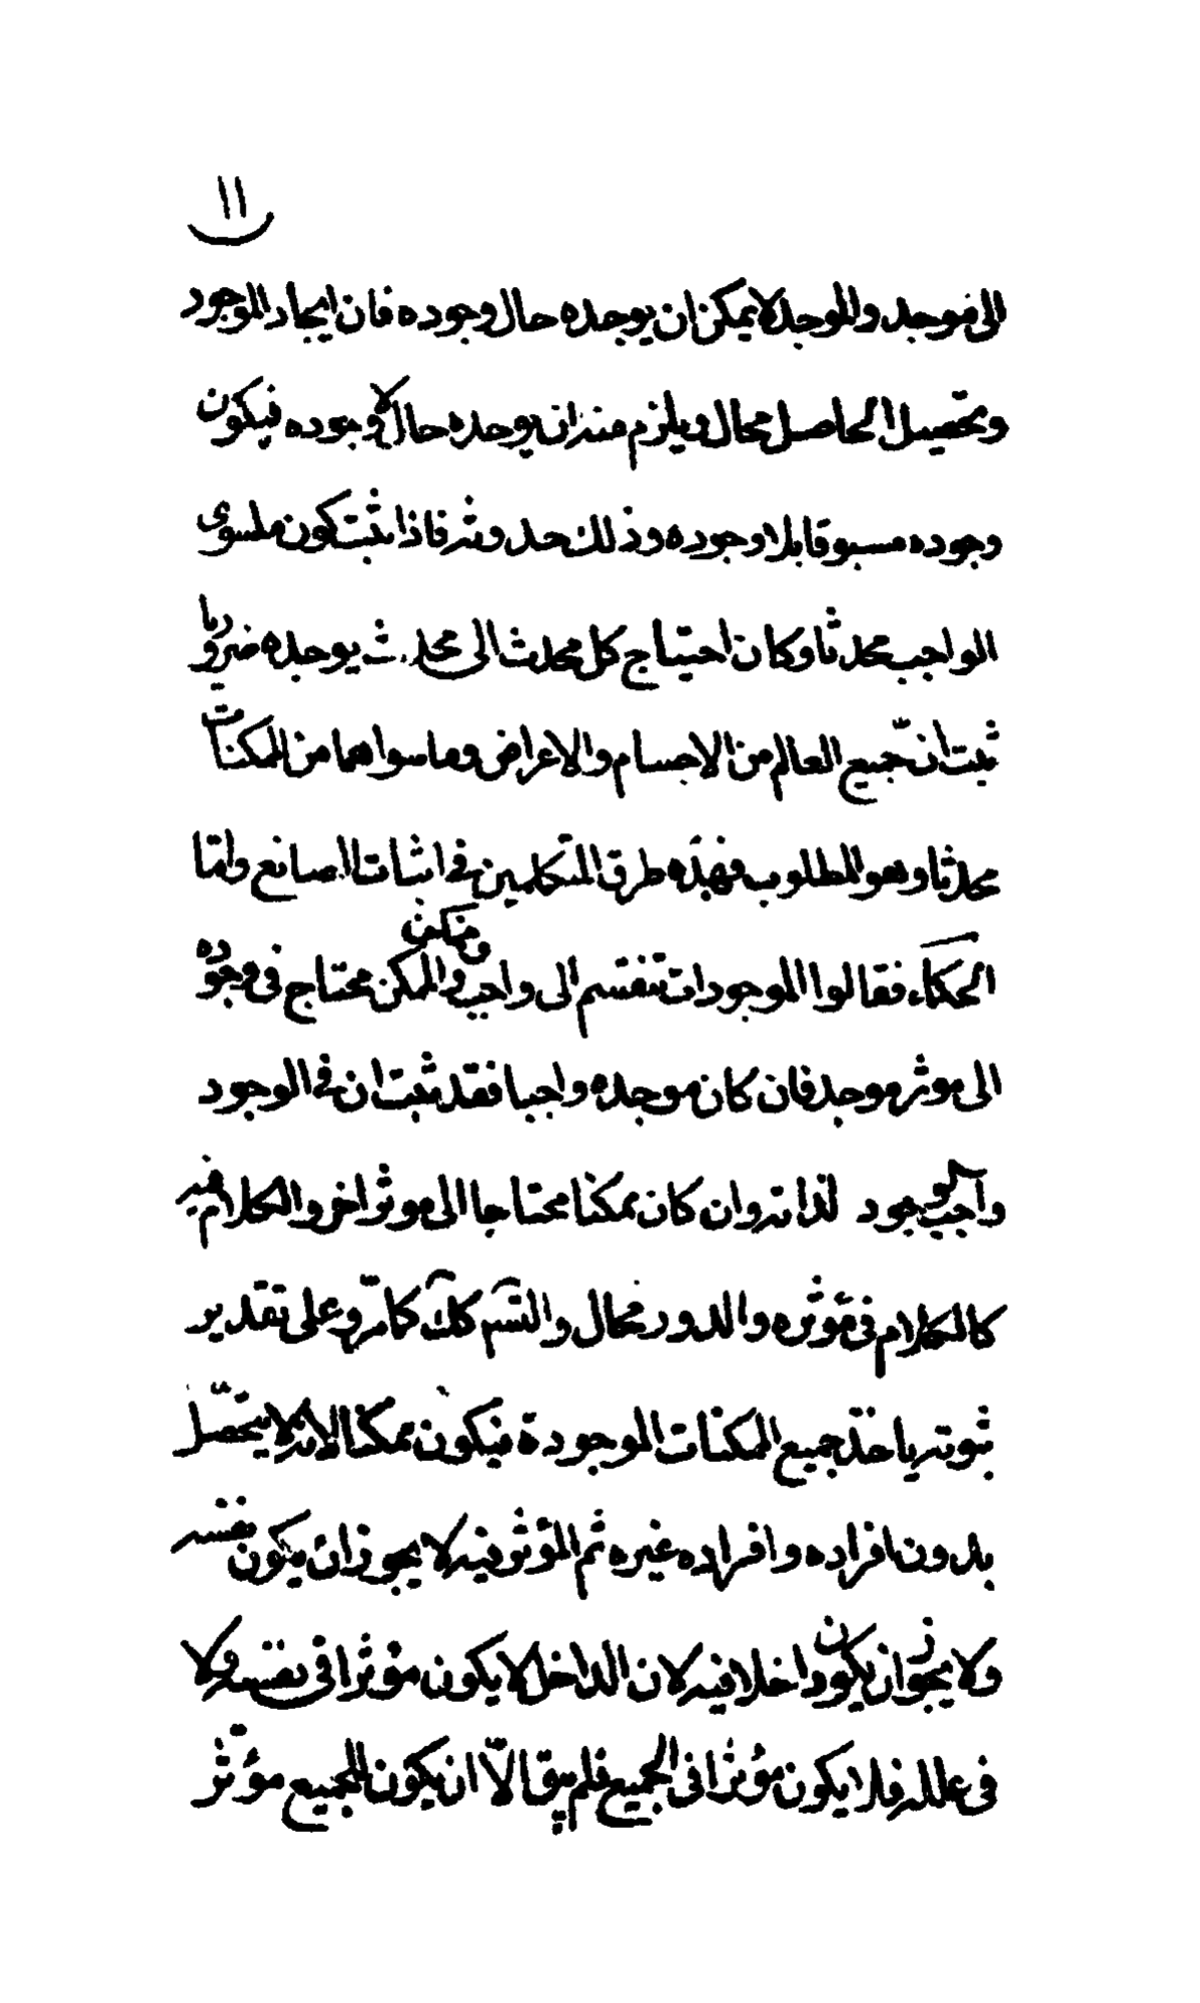 ١١
الى موجد والموجد لا يمكن ان يوجده حال وجوده فان ايجاد الموجود
وتحصيل الحاصل محال ويلزم منه ان يوجده حال لا وجوده فيكون
وجوده مسبوقا بلا وجوده وذلك حدوثه فاذا ثبت كون ما سوى
الواجب محدثا وكان احتياج كل محدث الى محدث يوجده ضروريا
ثبت انّ جميع العالم من الاجسام والاعراض وما سواهما من الممكنات
محدثا وهو المطلوب فهذه طرق المتكلمين فى اثبات الصانع وامّا
الحكماء فقالوا الموجودات تنقسم الى واجب وممكن والممكن محتاج فى وجوده
الى موثر موجد فان كان موجده واجبا فقد ثبت ان فى الوجود
واجب الوجود لذاته وان كان ممكنا محتاجا الى موثر اخر والكلام فيه
كالكلام فى مؤثره والدور محال والتسم كك كما مرّ وعلى تقدير
ثبوته ياخذ جميع الممكنات الموجودة فيكون ممكنا لانه لا يتحصّل
بدون افراده وافراده غيره ثم المؤثر فيه لا يجوز ان يكون نفسه
ولا يجوز ان يكون داخلا فيه لان الداخل لا يكون مؤثرا فى نفسه ولا
فى علله فلا يكون مؤثرا فى الجميع فلم يبق الّا ان يكون للجميع مؤثر